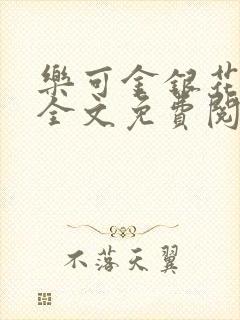 樂可金銀花
全文免費閱
不落天翼